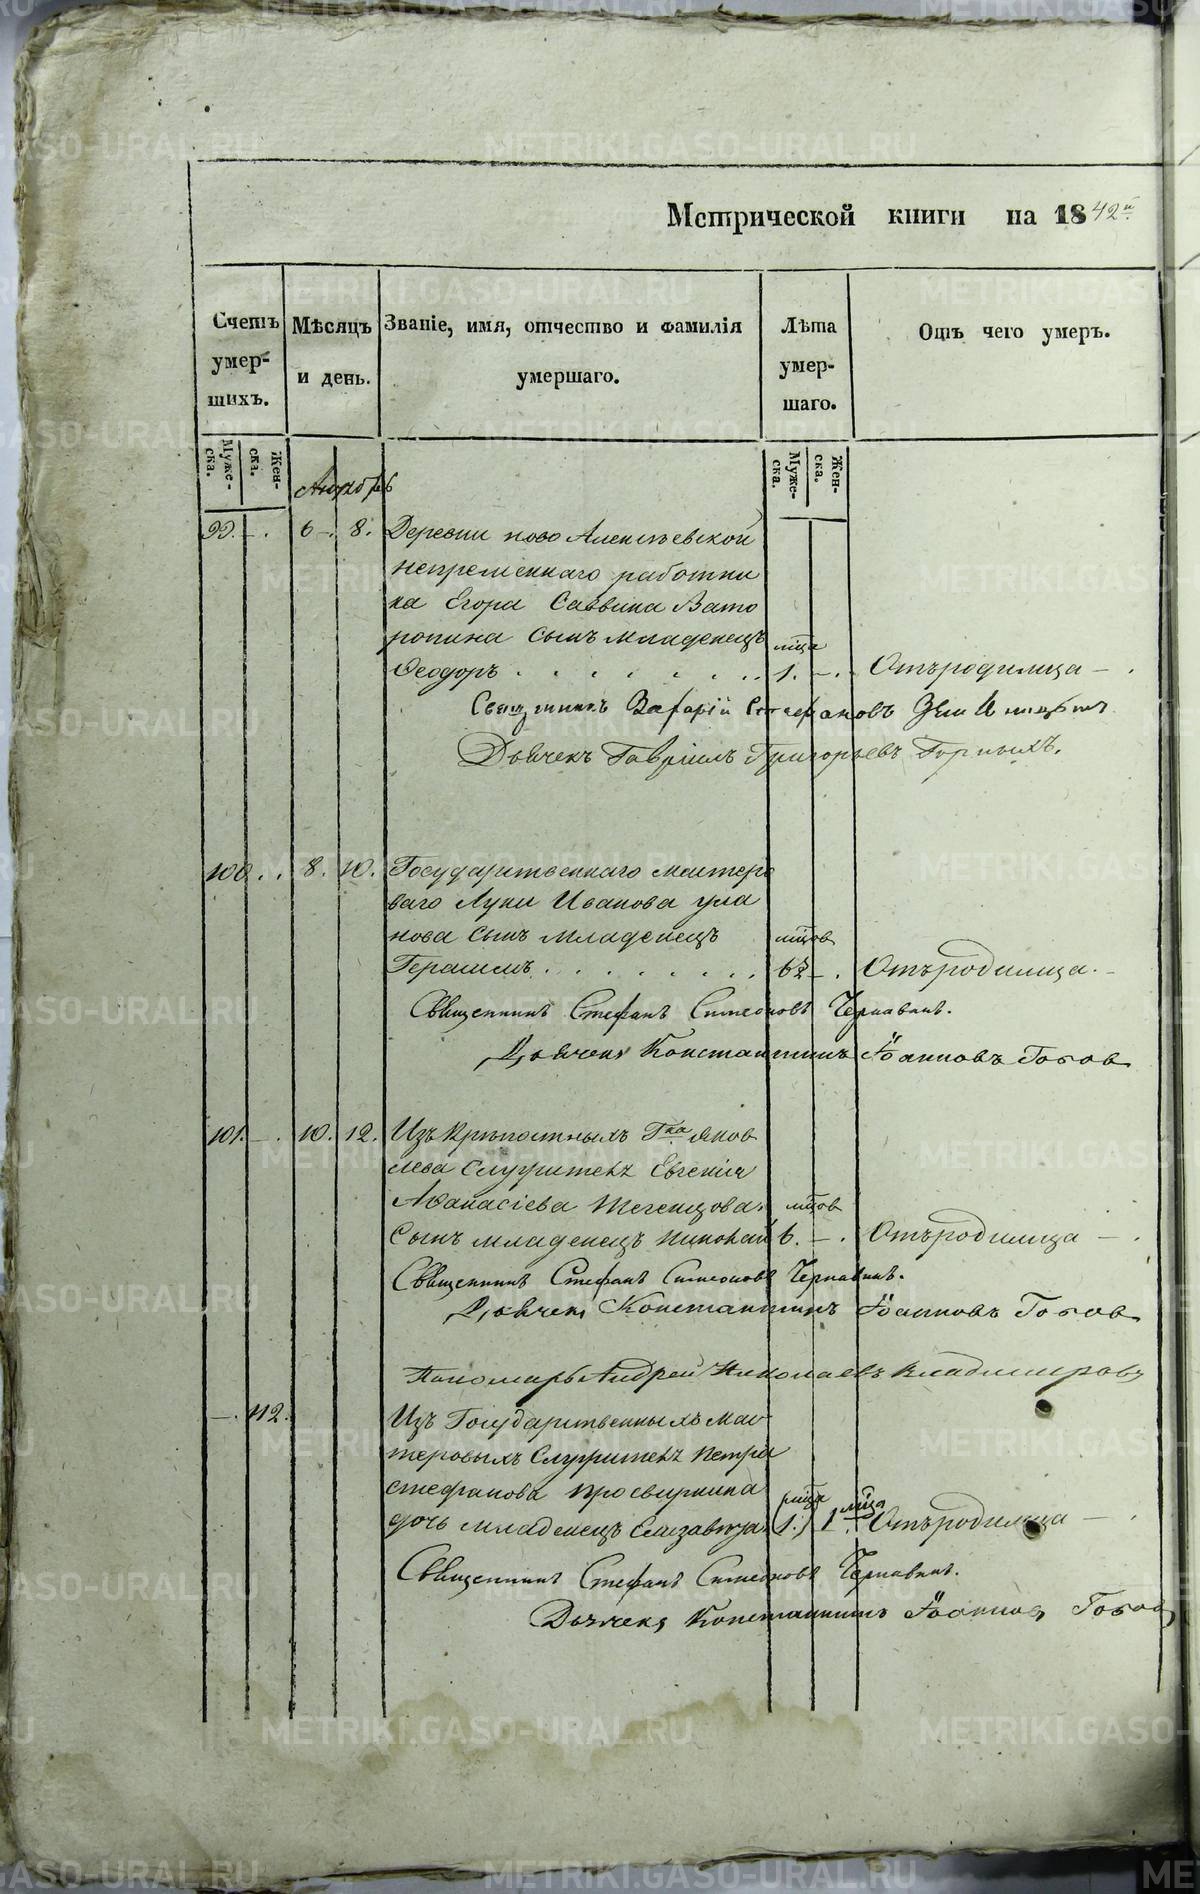 Метрической книги на 1842й
Счетъ умершихъ.
Мѣсяцъ и день.
Званіе, имя, отчество и фамилія умершаго.
Лѣта умершаго.
Отъ чего умеръ.
Мужеска.
Женска.
Мужеска.
Женска.
99. – . 6 – . 8. Деревни ново Алексѣевской
непременнаго работни
ка Егора Саввина Вато
ропина сынъ младенецъ мца
Феодоръ . . . . . . . 1. – . Отъ родимца – .
Священникъ Захарій Стефановъ
Дьячекъ Гавріилъ Григорьевъ Горныхъ.
100. . 8. 10. Государственнаго мастеро
ваго Луки Иванова Ула
нова сынъ младенецъ мцов
Герасимъ . . . . . . . 6½ – . Отъ родимца. –
Священникъ Стефанъ Симеоновъ Чернавинъ.
Дьячекъ Константинъ Іоанновъ Гогов
101. – . 10. 12. Изъ крѣпостныхъ Гна Яков
лева служителя Евгенія
Афанасіева Шегенцова мцов
сынъ младенецъ Николай 6. – . Отъ родимца – .
Священникъ Стефанъ Симеоновъ Чернавинъ.
Дьячекъ Константинъ Іоанновъ Гогов
Пономарь Андрей Николаевъ Владимировъ
– . 112. Изъ Государственныхъ мас
теровыхъ служителя Петра
Стефанова Просвирнина мца мца
дочь младенецъ Елизавета (1.) 1. Отъ родимца – .
Священникъ Стефанъ Симеоновъ Чернавинъ.
Дьячекъ Константинъ Іоанновъ Гогов
METRIKI.GASO-URAL.RU